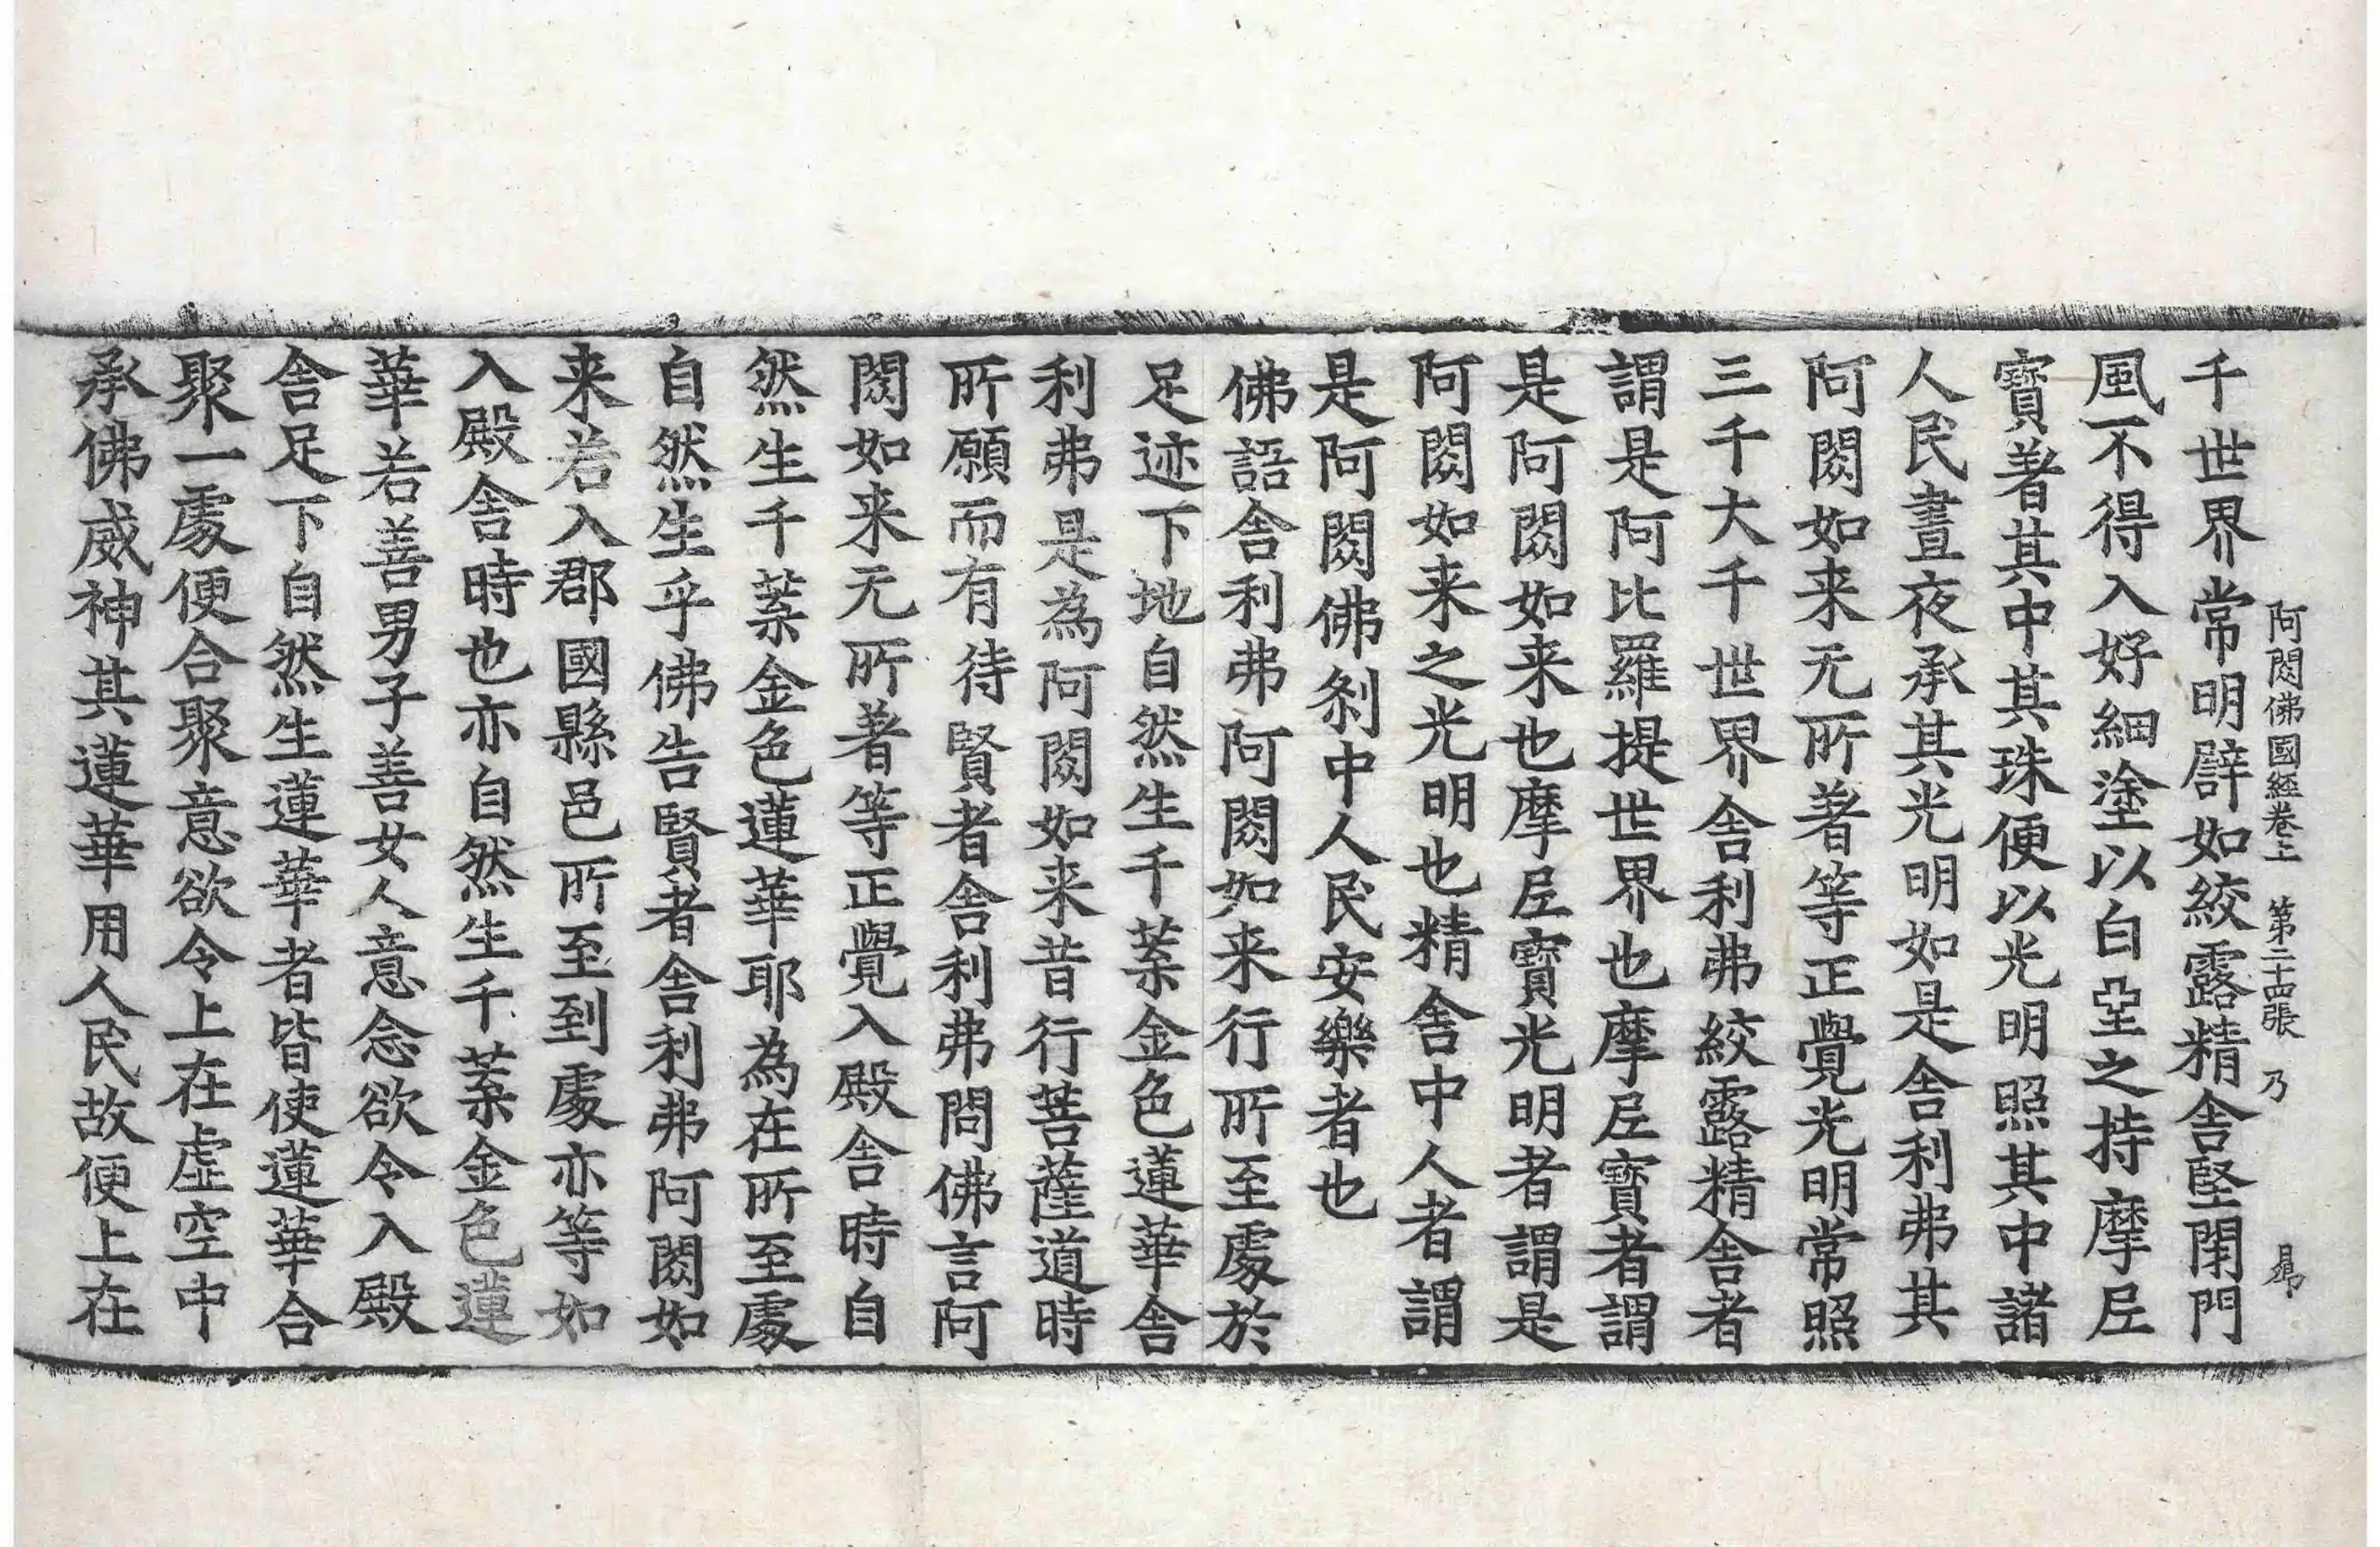 阿閦佛國經卷上　第二十四張　乃
千世界常明譬如絞露精舍堅閉門
風不得入好細塗以白堊之持摩尼
寶著其中其珠便以光明照其中諸
人民晝夜承其光明如是舍利弗其
阿閦如来无所著等正覺光明常照
三千大千世界舍利弗絞露精舍者
謂是阿比羅提世界也摩尼寶者謂
是阿閦如来也摩尼寶光明者謂是
阿閦如来之光明也精舍中人者謂
是阿閦佛剎中人民安樂者也
佛語舍利弗阿閦如来行所至處於
足迹下地自然生千葉金色蓮華舍
利弗是為阿閦如来昔行菩薩道時
所願而有待賢者舍利弗問佛言阿
閦如来无所著等正覺入殿舍時自
然生千葉金色蓮華耶為在所至處
自然生乎佛告賢者舍利弗阿閦如
来若入郡國縣邑所至到處亦等如
入殿舍時也亦自然生千葉金色蓮
華若善男子善女人意念欲令入殿
舍足下自然生蓮華者皆使蓮華合
聚一處便合聚意欲令上在虛空中
承佛威神其蓮華用人民故便上在